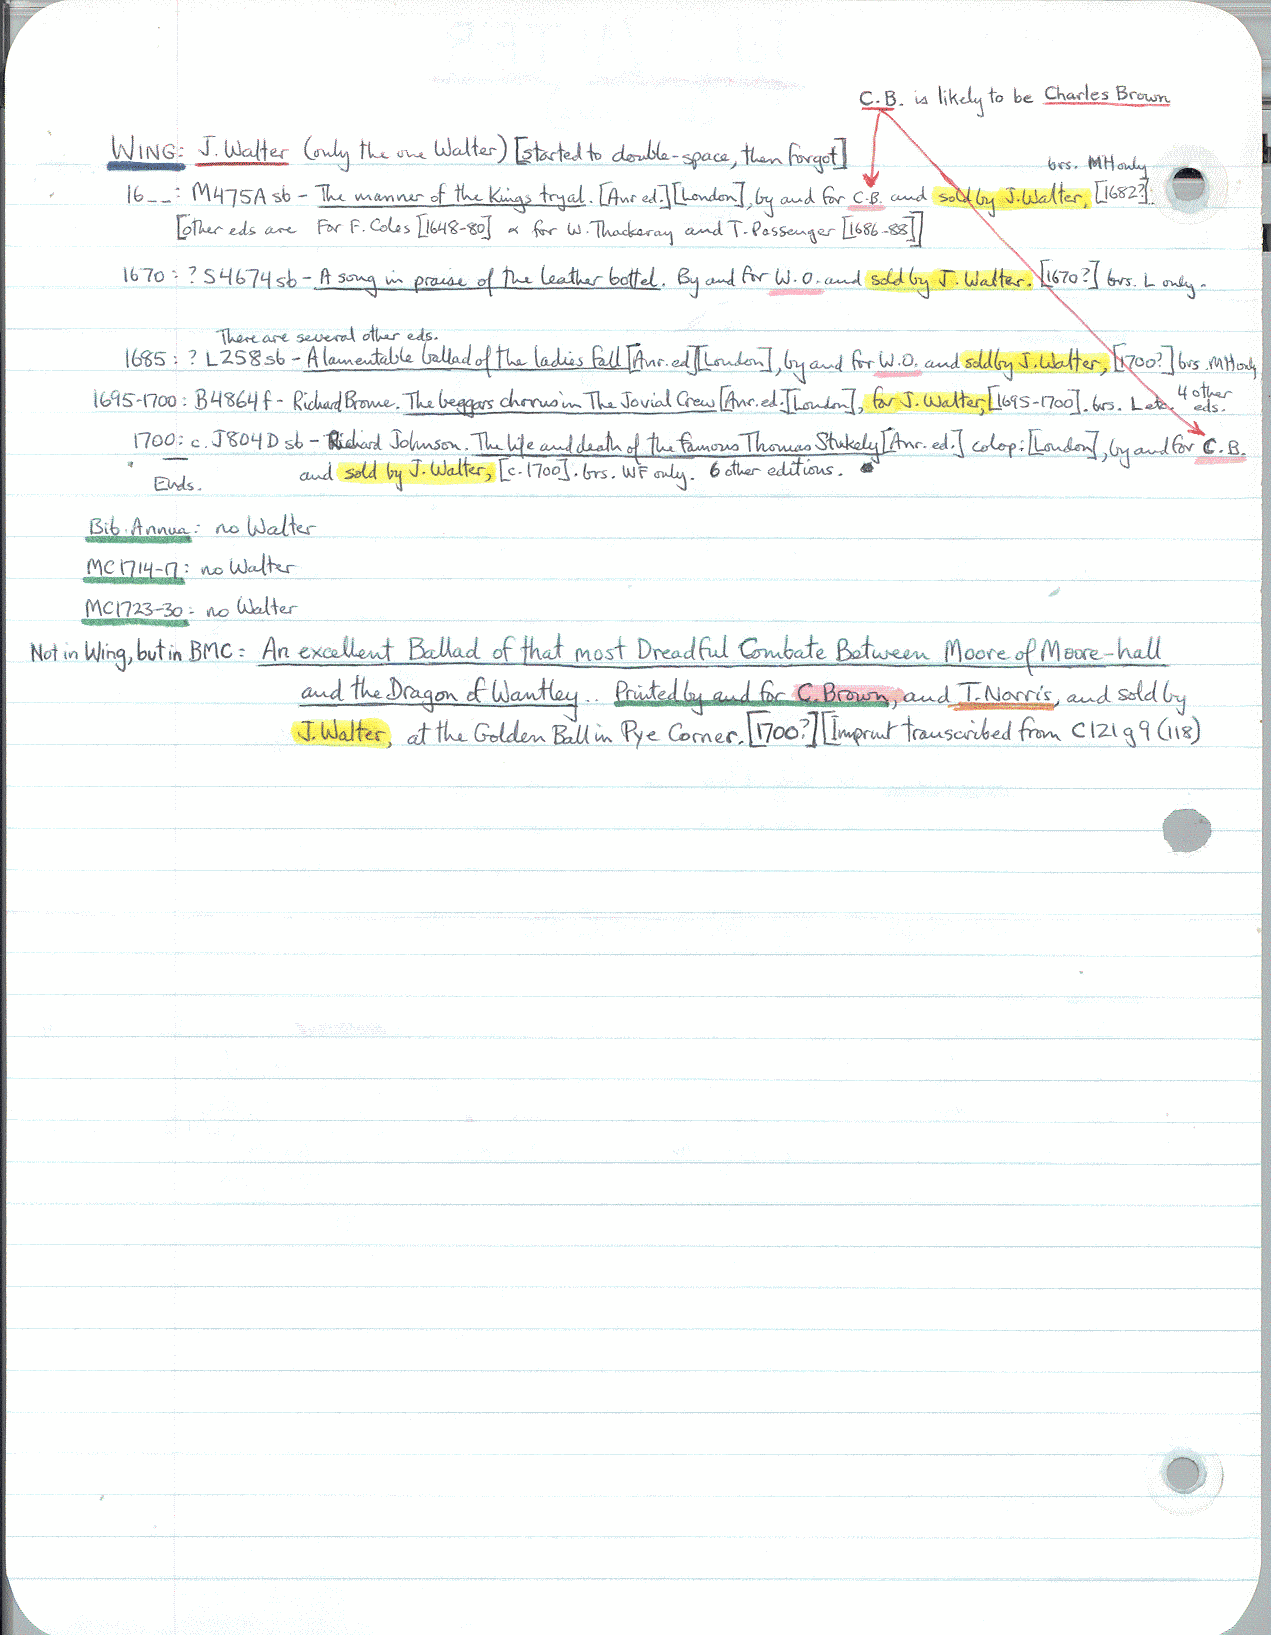 C.B. is likely to be Charles Brown
WING: J. Walter (only the one Walter) [started to double-space, then forgot]
brs. MH only
16__: M475A sb - The manner of the Kings tryal. [Anr ed.] [London], by and for C.B. and sold by J. Walter, [1682?].
[other eds are For F. Coles [1648-80] & for W. Thackeray and T. Passenger [1686-88]]
1670: ? S4674 sb - A song in praise of the leather bottel. By and for W.O. and sold by J. Walter. [1670?] brs. L only.
There are several other eds.
1685: ? L258 sb - A lamentable ballad of the ladies fall [Anr. ed] [London], by and for W.O. and sold by J. Walter, [1700?] brs. MH only
1695-1700: B4864f - Richard Brome. The beggars chorus in The Jovial Crew [Anr. ed.] [London], for J. Walter, [1695-1700]. brs. L etc. 4 other eds.
1700: c. J804D sb - Richard Johnson. The life and death of the famous Thomas Stukely [Anr. ed.] colop: [London], by and for C.B.
and sold by J. Walter, [c. 1700]. brs. WF only. 6 other editions.
Ends.
Bib. Annua: no Walter
MC1714-17: no Walter
MC1723-30: no Walter
Not in Wing, but in BMC: An excellent Ballad of that most Dreadful Combate Between Moore of Moore-hall
and the Dragon of Wantley.. Printed by and for C. Brown, and T. Norris, and sold by
J. Walter, at the Golden Ball in Pye Corner. [1700?] [Imprint transcribed from C121g9(118)